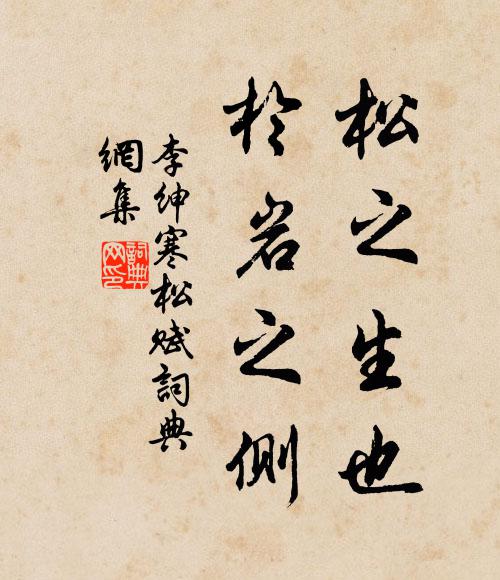 松之生也
於岩之側
李紳寒松赋詞典
網集
詞典
网印